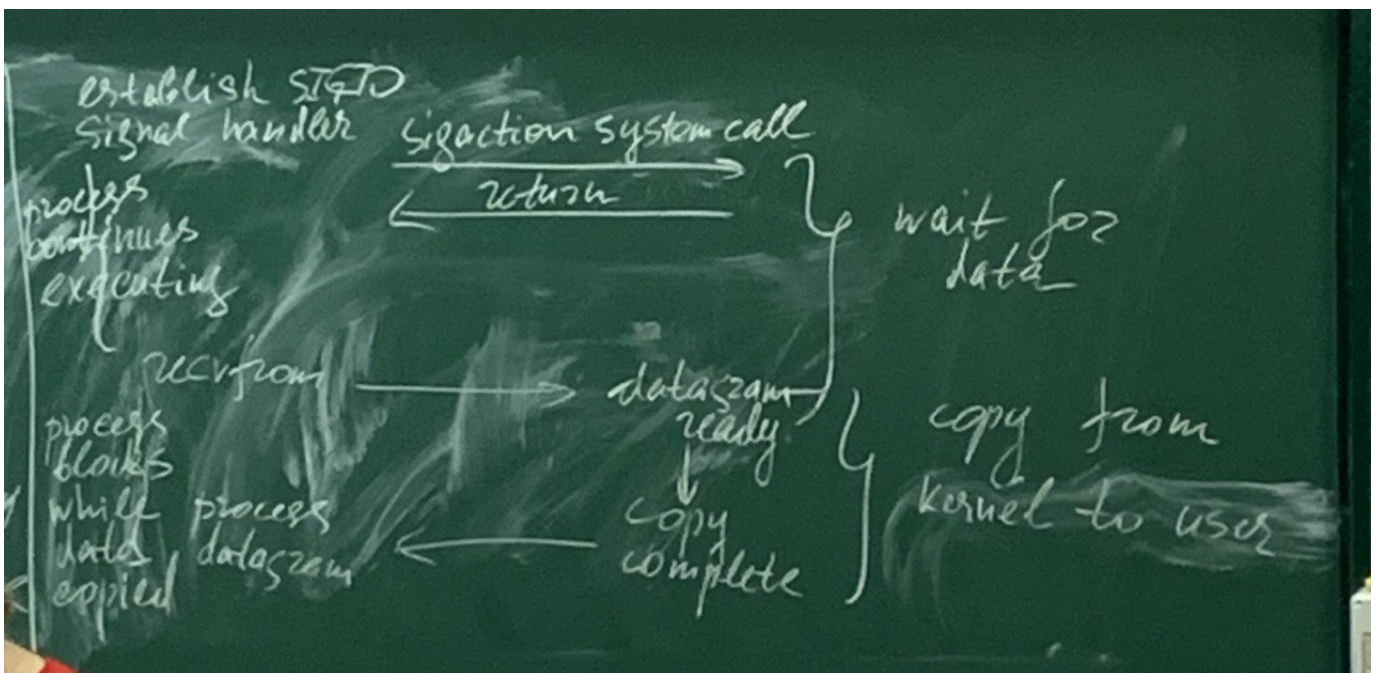 establish SIGIO
signal handler
sigaction system call
return
process
continues
executing
wait for
data
recvfrom
datagram
ready
process
blocks
while
data
copied
process
datagram
copy
complete
copy from
kernel to user